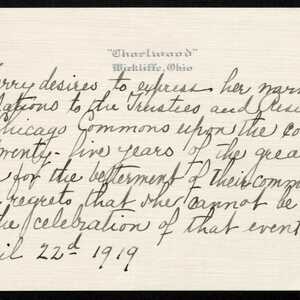 "Chorlwood"
Wickliffe, Ohio
rry desires to express her warm
lations to the Trustees and Resi
Chicago Commons upon the co
wenty-five years of the grea
for the betterment of their comm
regrets that she cannot be
the celebration of that event
il 22d 1919